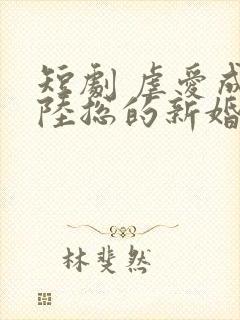 短劇 虐愛成
陸総的新婚
林斐然